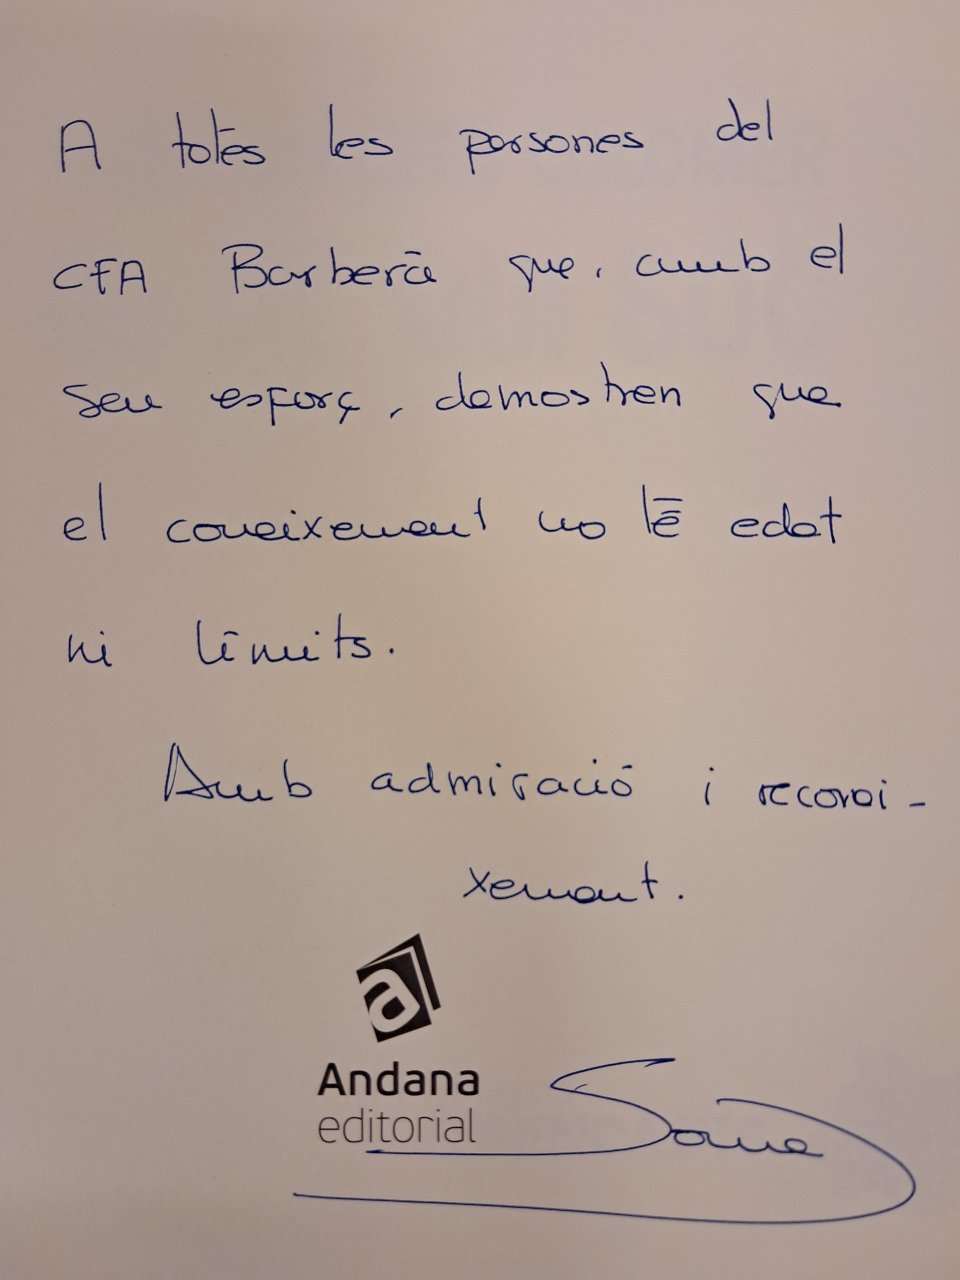 A totes les persones del
CFA Barberà que, amb el
seu esforç, demostren que
el coneixement no té edat
ni límits.
Amb admiració i reconei-
xement.
a
Andana
editorial
Sonia